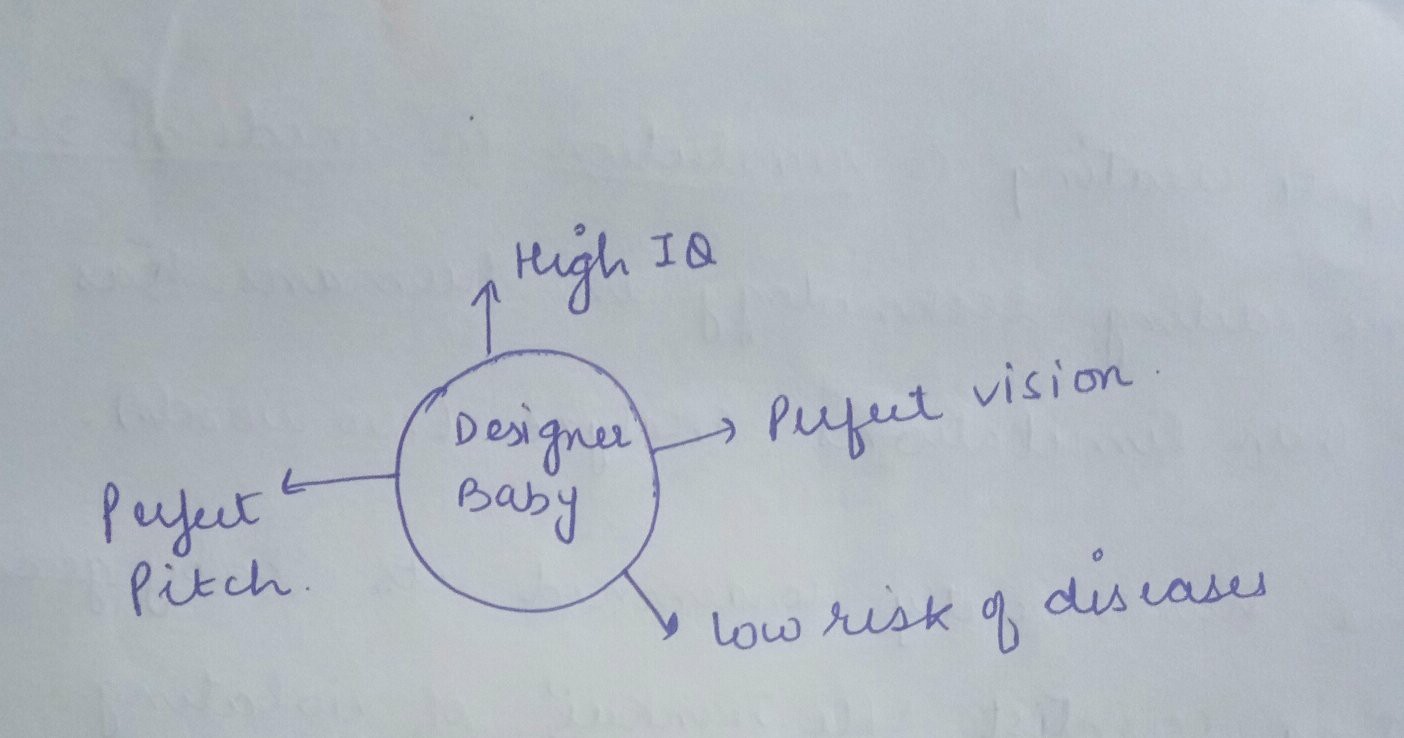 High IQ
Perfect vision.
Designer
Baby
Perfect
Pitch.
low risk of diseases